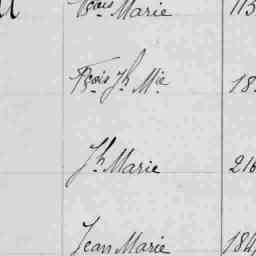 Fçois Marie 115
Fçois Jh Mie 18
Jh Marie 216
Jean Marie 184